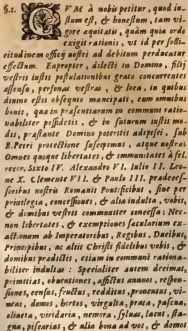 §.1. CVM à nobis petitur, quod iu-
stum est, & honestum, tam vi-
gore aquitatis, quàm quia ordo
exigit rationis, vt id per solli-
citudinem officij nostri ad debitum perducatur
effectum. Eapropter, dilecti in Domino, filij
vestris iustis postulationibus grato concurrentes
assensu, personas vestras, & loca, in quibus
diuino estis obsequio mancipati, cum omnibus
bonis, quæ in præsentiarum in communi ratio-
nabiliter possidetis, & in futurum iustis mo-
dis, præstante Domino poteritis adipisci, sub
B. Petri protectione suscepimus, atque nostra.
Omnes quoque libertates, & immunitates à fel.
recor. Sixto IV. Alexandro VI. Iulio II. Leo-
ne X. Clemente VII. & Paulo III. prædeces-
soribus nostris Romanis Pontificibus, siue per
priuilegia, concessiones, & alia indulta, vobis,
& domibus vestris communiter concessa: Nec-
non libertates, & exemptiones sæcularium ex-
actionum ab Imperatoribus, Regibus, Ducibus,
Principibus, ac alijs Christi fidelibus vobis, &
domibus prædictis etiam in communi ratio-
nabiliter indultas: Specialiter autem decimas,
primitias, obuentiones, affictus annuos, respon-
siones, census, fructus, redditus, prouentus, vi-
neas, domos, hortos, virgulta, prata, pascua,
oliueta, viridaria, nemora, syluas, lacus, sta-
gna, piscarias, & alia bona ad vos, & domos